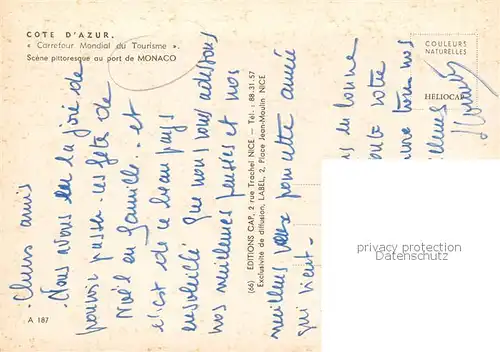 COTE D'AZUR.
« Carrefour Mondial du Tourisme ».
Scène pittoresque au port de MONACO
COULEURS
NATURELLES
HÉLIOCAP
Chers amis
Nous avons eu la joie de
pouvoir passer ces fêtes de
Noël en famille... et
c'est de ce beau pays
ensoleillé que nous vous adressons
nos meilleures pensées et nos
meilleurs vœux pour cette année
qui vient -
en bonne
toute votre
nos
(66) EDITIONS CAP, 2 rue Trachel NICE — Tél. : 88.31.57
Exclusivité de diffusion, LABEL, 2, Place Jean-Moulin NICE
A 187
privacy protection
Datenschutz